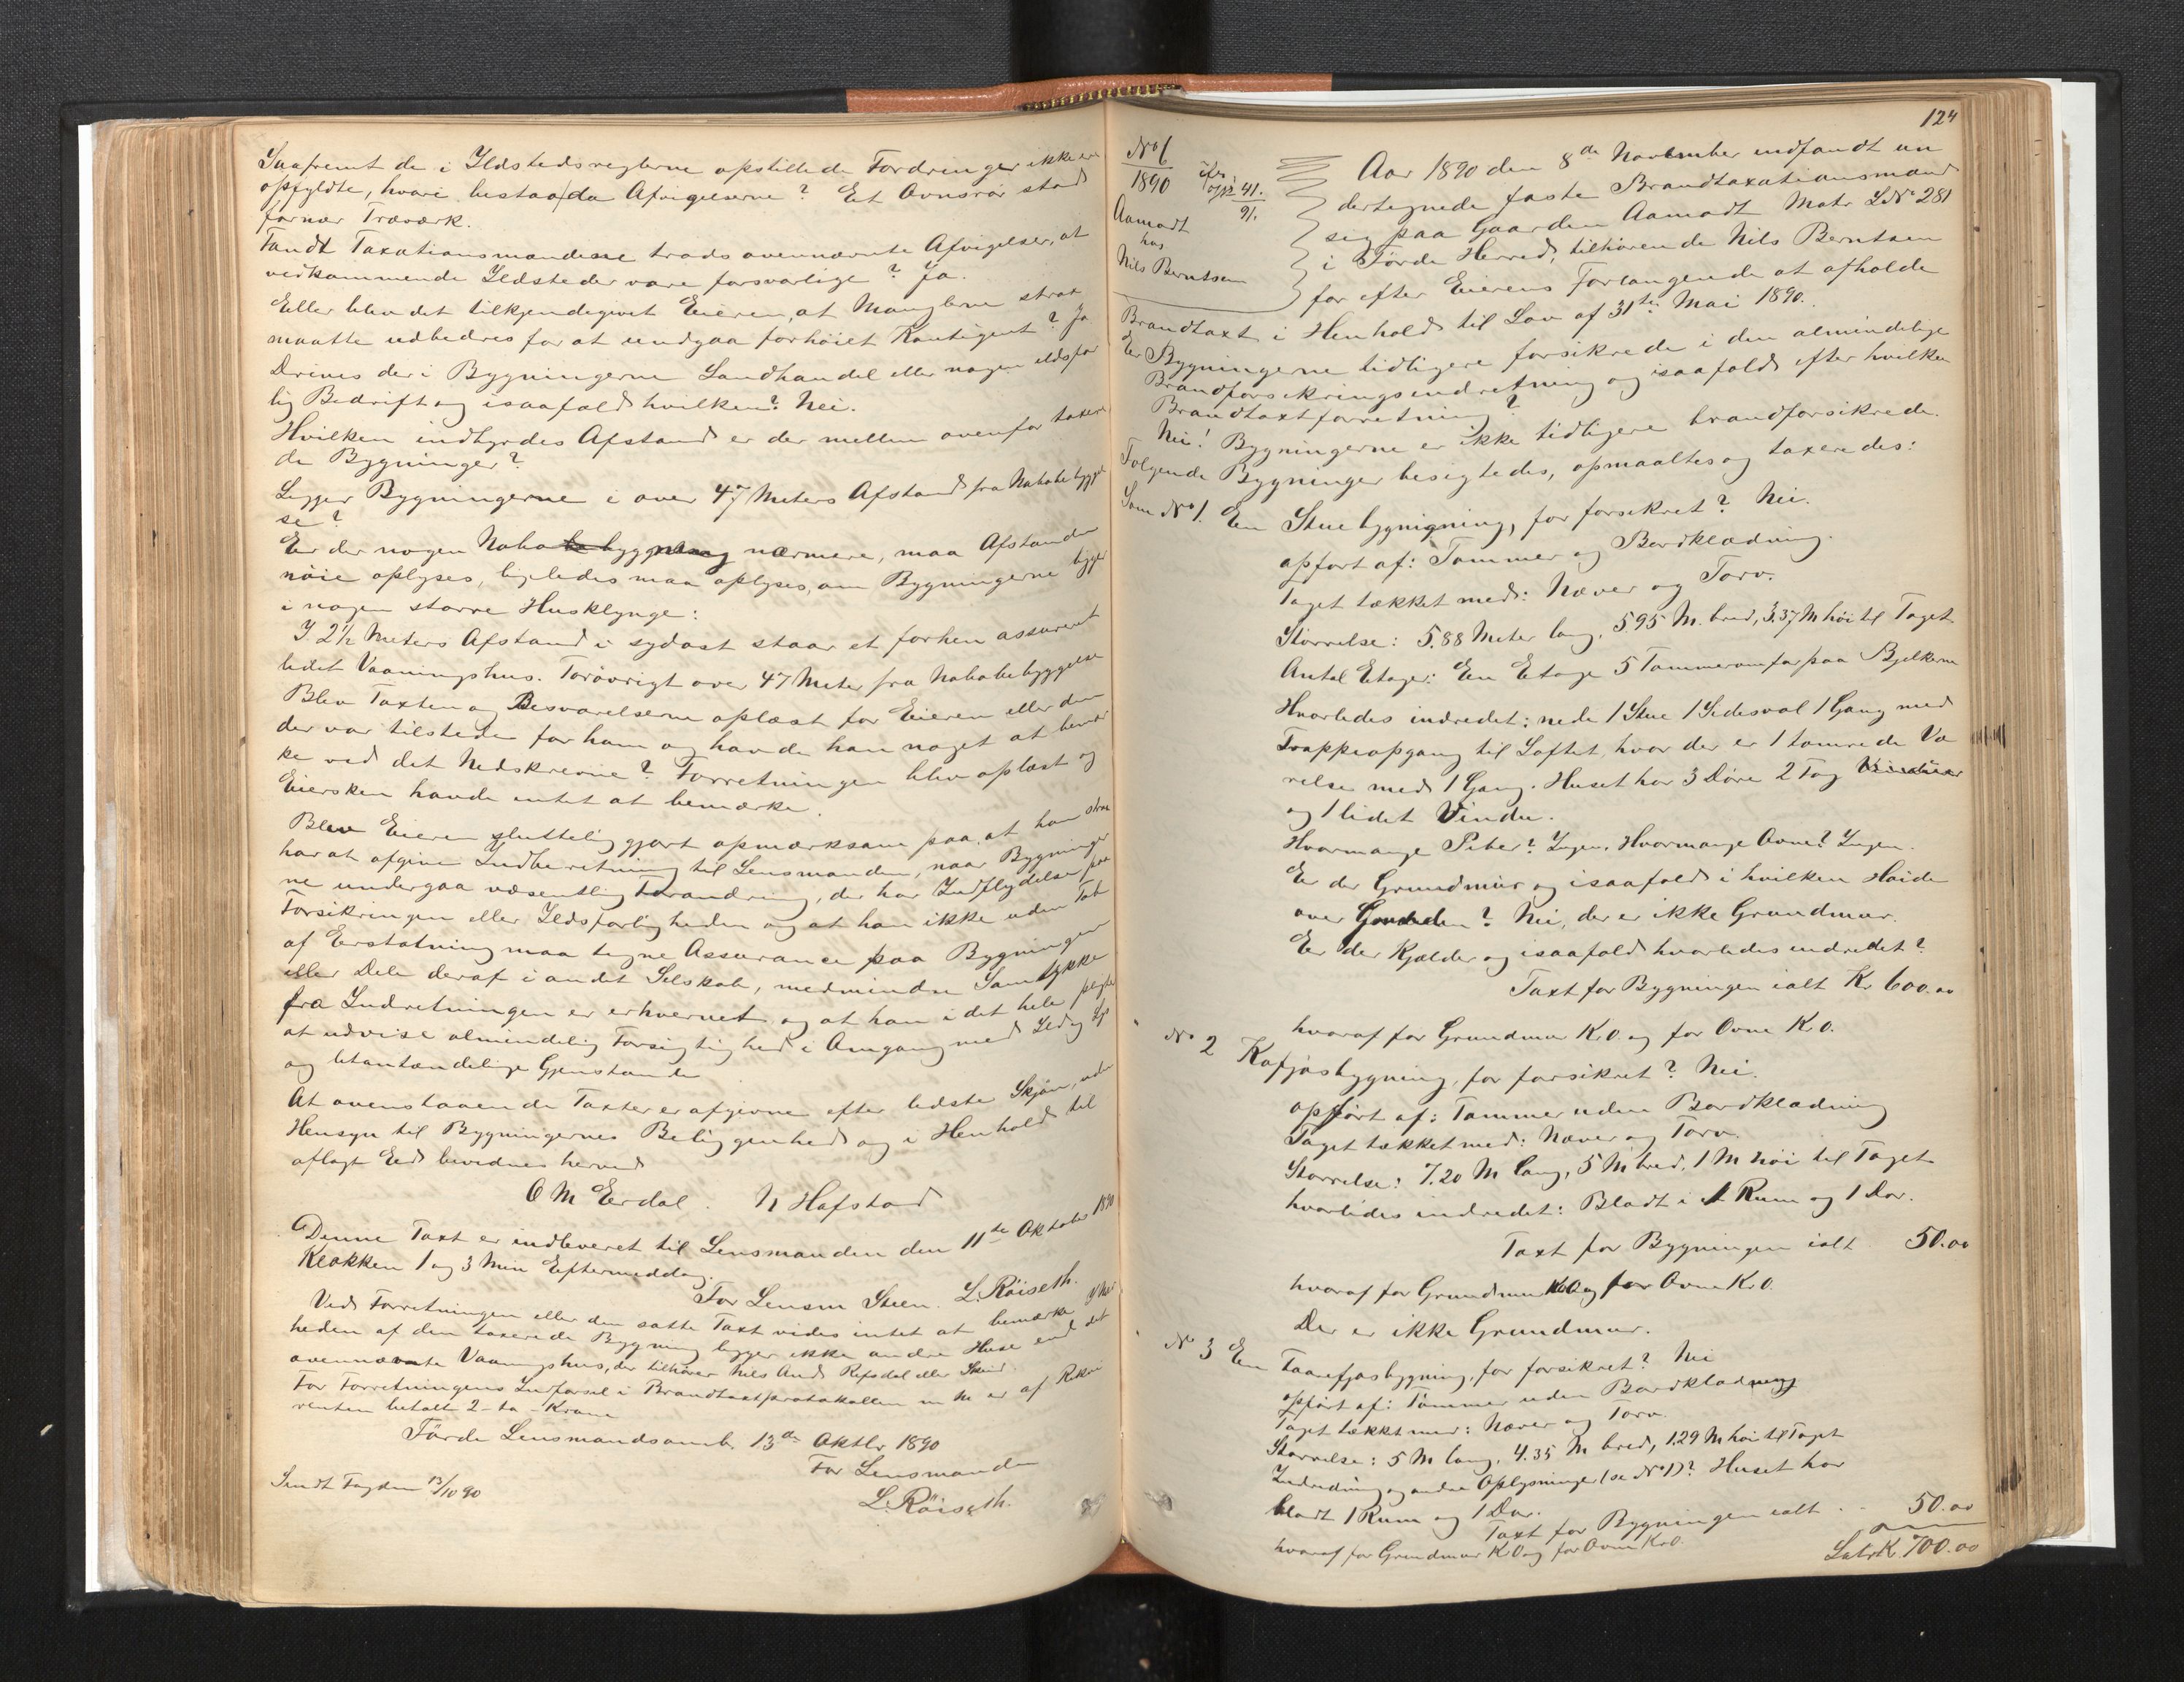 Saafremt de i Ildstedsreglerne opstillede Fordringer ikke er
opfyldte, hvori bestaa da Afvigelserne? Et Ovnsrör stod
fornær Træværk.
Fandt Taxationsmændene trods ovennævnte Afvigelser, at
vedkommende Ildsteder vare forsvarlige? Ja.
Eller blev det tilkjendegivet Eieren, at Manglerne strax
maatte udbedres for at undgaa forhöiet Kontigent? Ja
Drives der i Bygningerne Landhandel eller nogen ildsfar
lig Bedrift og isaafald hvilken? Nei.
Hvilken indbyrdes Afstand er der mellem ovenfor taxere
de Bygninger?
Ligger Bygningerne i over 47 Meters Afstand fra Nabobebyggel
se?
Er der nogen Nabobebyggning nærmere, maa Afstanden
nöie oplyses, ligeledes maa oplyses, om Bygningerne ligger
i nogen større Husklynge:
I 2½ Meters Afstand i sydost staar et forhen assureret
lidet Vaaningshus. Forövrigt over 47 Meter fra Nabobebyggelse
Blev Taxten og Besvarelserne oplæst for Eieren eller den
der var tilstede for ham og havde han noget at bemær
ke ved det Nedskrevne? Forretningen blev oplæst og
Eiersken havde intet at bemærke.
Blev Eieren sluttelig gjort opmærksom paa, at han strax
har at afgive Indberetning til Lensmanden, naar Bygninger
ne undergaa væsentlig Forandring, der har Indflydelse paa
Forsikringen eller Ildsfarligheden og at han ikke uden Tab
af Erstatning maa tegne Assurance paa Bygningen
eller Dele deraf i andet Selskab, medmindre Samtykke
fra Indretningen er erhvervet og at han i det hele pligter
at udvise almindelig Forsigtighed i Omgang med Ild og Lys
og letantændelige Gjenstande
At ovenstaaende Taxter er afgivne efter bedste Skjön, uden
Hensyn til Bygningernes Beliggenhed og i Henhold til
aflagt Eed bevidnes herved
O M Erdal. N Hafstad
Denne Taxt er indleveret til Lensmanden den 11te Oktober 1890
Klokken 1 og 3 Min Eftermiddag.
For Lensm Steen. L. Röiseth.
Ved Forretningen eller den satte Taxt vides intet at bemærke
heden af den taxerede Bygning ligger ikke andre Huse end det
ovennævnte Vaaningshus, der tilhörer Nils And. Refsdal eller Skeid
For Forretningens Indförsel i Brandtaxtprotokollen m. m. er af Rekvi
renten betalt 2 - to - Kroner
Förde Lensmandsomb. 13de Oktbr 1890
For Lensmanden
L. Röiseth.
Sendt Fogden 13/10 90
124
No 6
1890
opk 41.
91.
Aamodt
hos
Nils Berntsen
Aar 1890 den 8de November indfandt un
dertegnede faste Brandtaxationsmænd
sig paa Gaarden Aamodt Matr LNo 281
i Förde Herred, tilhörende Nils Berntsen
for efter Eierens Forlangende at afholde
Brandtaxt i Henhold til Lov af 31te Mai 1890.
Er Bygningerne tidligere forsikrede i den almindelige
Brandforsikringsindretning og isaafald efter hvilken
Brandtaxtforretning?
Nei! Bygningerne er ikke tidligere brandforsikrede.
Følgende Bygninger besigtedes, opmaaltes og taxeredes:
Som No 1. En Stuebygnigning, for forsikret? Nei.
opfört af: Tømmer og Bordklædning.
Taget tækket med: Næver og Torv.
Størrelse: 5.88 Meter lang, 5.95 M. bred, 3.37 M höi til Taget
Antal Etager: En Etage 5 Tømmeromfar paa Bjelkerne
Hvorledes indredet: nede 1 Stue 1 Sidesval 1 Gang med
Trappeopgang til Loftet, hvor der er 1 tømrede Væ
relse med 1 Gang. Huset har 3 Döre 2 Fag Vinduer
og 1 lidet Vindu.
Hvormange Piber? Ingen. Hvormange Ovne? Ingen.
Er der Grundmur og isaafald i hvilken Höide
over Grunden? Nei, der er ikke Grundmur.
Er der Kjælder og isaafald hvorledes indredet?
Taxt for Bygningen ialt Kr 600.00
hvoraf for Grundmur Kr 0. og for Ovne Kr 0.
No 2 Kofjøsbygning, for forsikret? Nei.
opfört af: Tømmer uden Bordklædning
Taget tækket med: Næver og Torv.
Størrelse: 7.20 M lang, 5 M bred, 1 M höi til Taget
hvorledes indredet: Blodt i 1 Rum og 1 Dør.
Taxt for Bygningen ialt 50.00
hvoraf for Grundmur Kr 0 og for Ovne Kr 0.
Der er ikke Grundmur.
No 3 En Faarefjøsbygning, for forsikret? Nei
opfört af: Tömmer uden Bordklædning
Taget tækket med: Næver og Torv.
Størrelse: 5 M lang, 4.35 M bred, 1.29 M höi til Taget
Indredning og andre Oplysninger (se No 1)? Huset har
blodt 1 Rum og 1 Dør.
Taxt for Bygningen ialt . - 50.00
hvoraf for Grundmur Kr 0 og for Ovne Kr 0.
Latr Kr 700.00